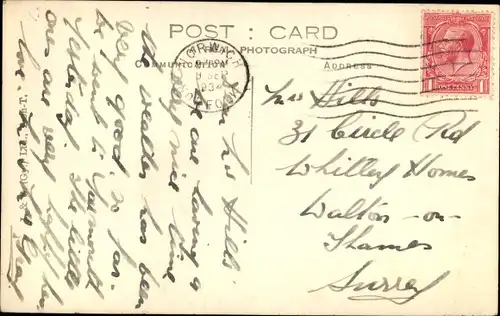 POST : CARD
PHOTOGRAPH
COMMUNICATION
ADDRESS
NORWICH
NORFOLK
Dear Mrs Hills
We are having a
very nice time
the weather has been
very good, so far.
we went to Yarmouth
Yesterday. The little
ones are very
love
Mrs Hills
31 Circle Rd
Whiteley Homes
Walton-on-
Thames
Surrey
1 ONE PENNY 1